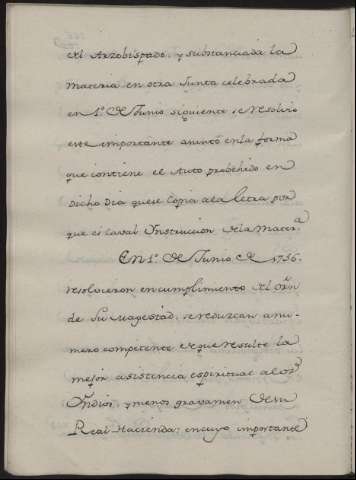 del Arzobispado, y substanciada la
materia en otra Junta celebrada
en 1º. de Junio siguiente se resolvio
este importante asunto en la forma
que contiene el Auto probehido en
dicho dia que se copia ala letra por
que es la val Instruccion dela Matera
En 1º. de Junio de 1756.
resolvieron en cumplimiento del orn
de Su Magestad, se reduzcan a nu-
mero competente de que resulte la
mejor asistencia espiritual alos
Yndios, y menos gravamen de su
Real Hacienda: en cuyo importante